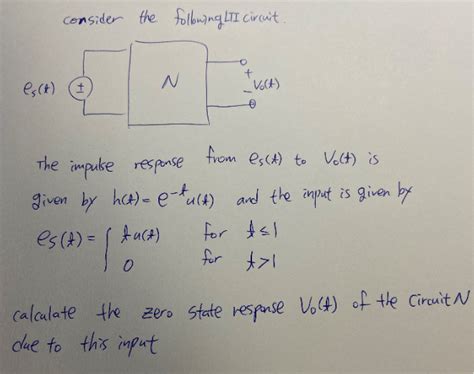 consider the following LTI circuit.
es(t) ± N + Vo(t) -
The impulse response from es(t) to Vo(t) is
given by h(t) = e^-t u(t) and the input is given by
es(t) = { t u(t) for t ≤ 1
0 for t > 1
calculate the zero state response Vo(t) of the circuit N
due to this input